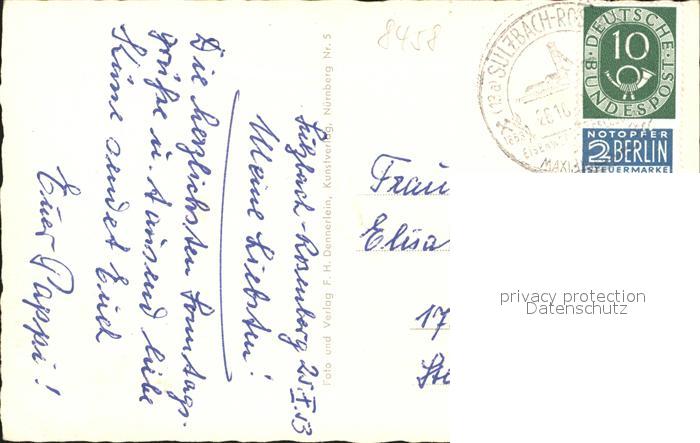 Sulzbach-Rosenberg 25.X.53
Meine Liebsten!
Die herzlichsten Sonntags-
grüße u. tausend liebe
Küsse sendet Euch
Euer Pappi!
Foto und Verlag F. H. Dennerlein, Kunstverlag, Nürnberg Nr. 5
8458
SULZBACH-RO
DEUTSCHE
10
BUNDESPOST
NOTOPFER
2 BERLIN
STEUERMARKE
Frau
Elisa
17
Ste
privacy protection
Datenschutz